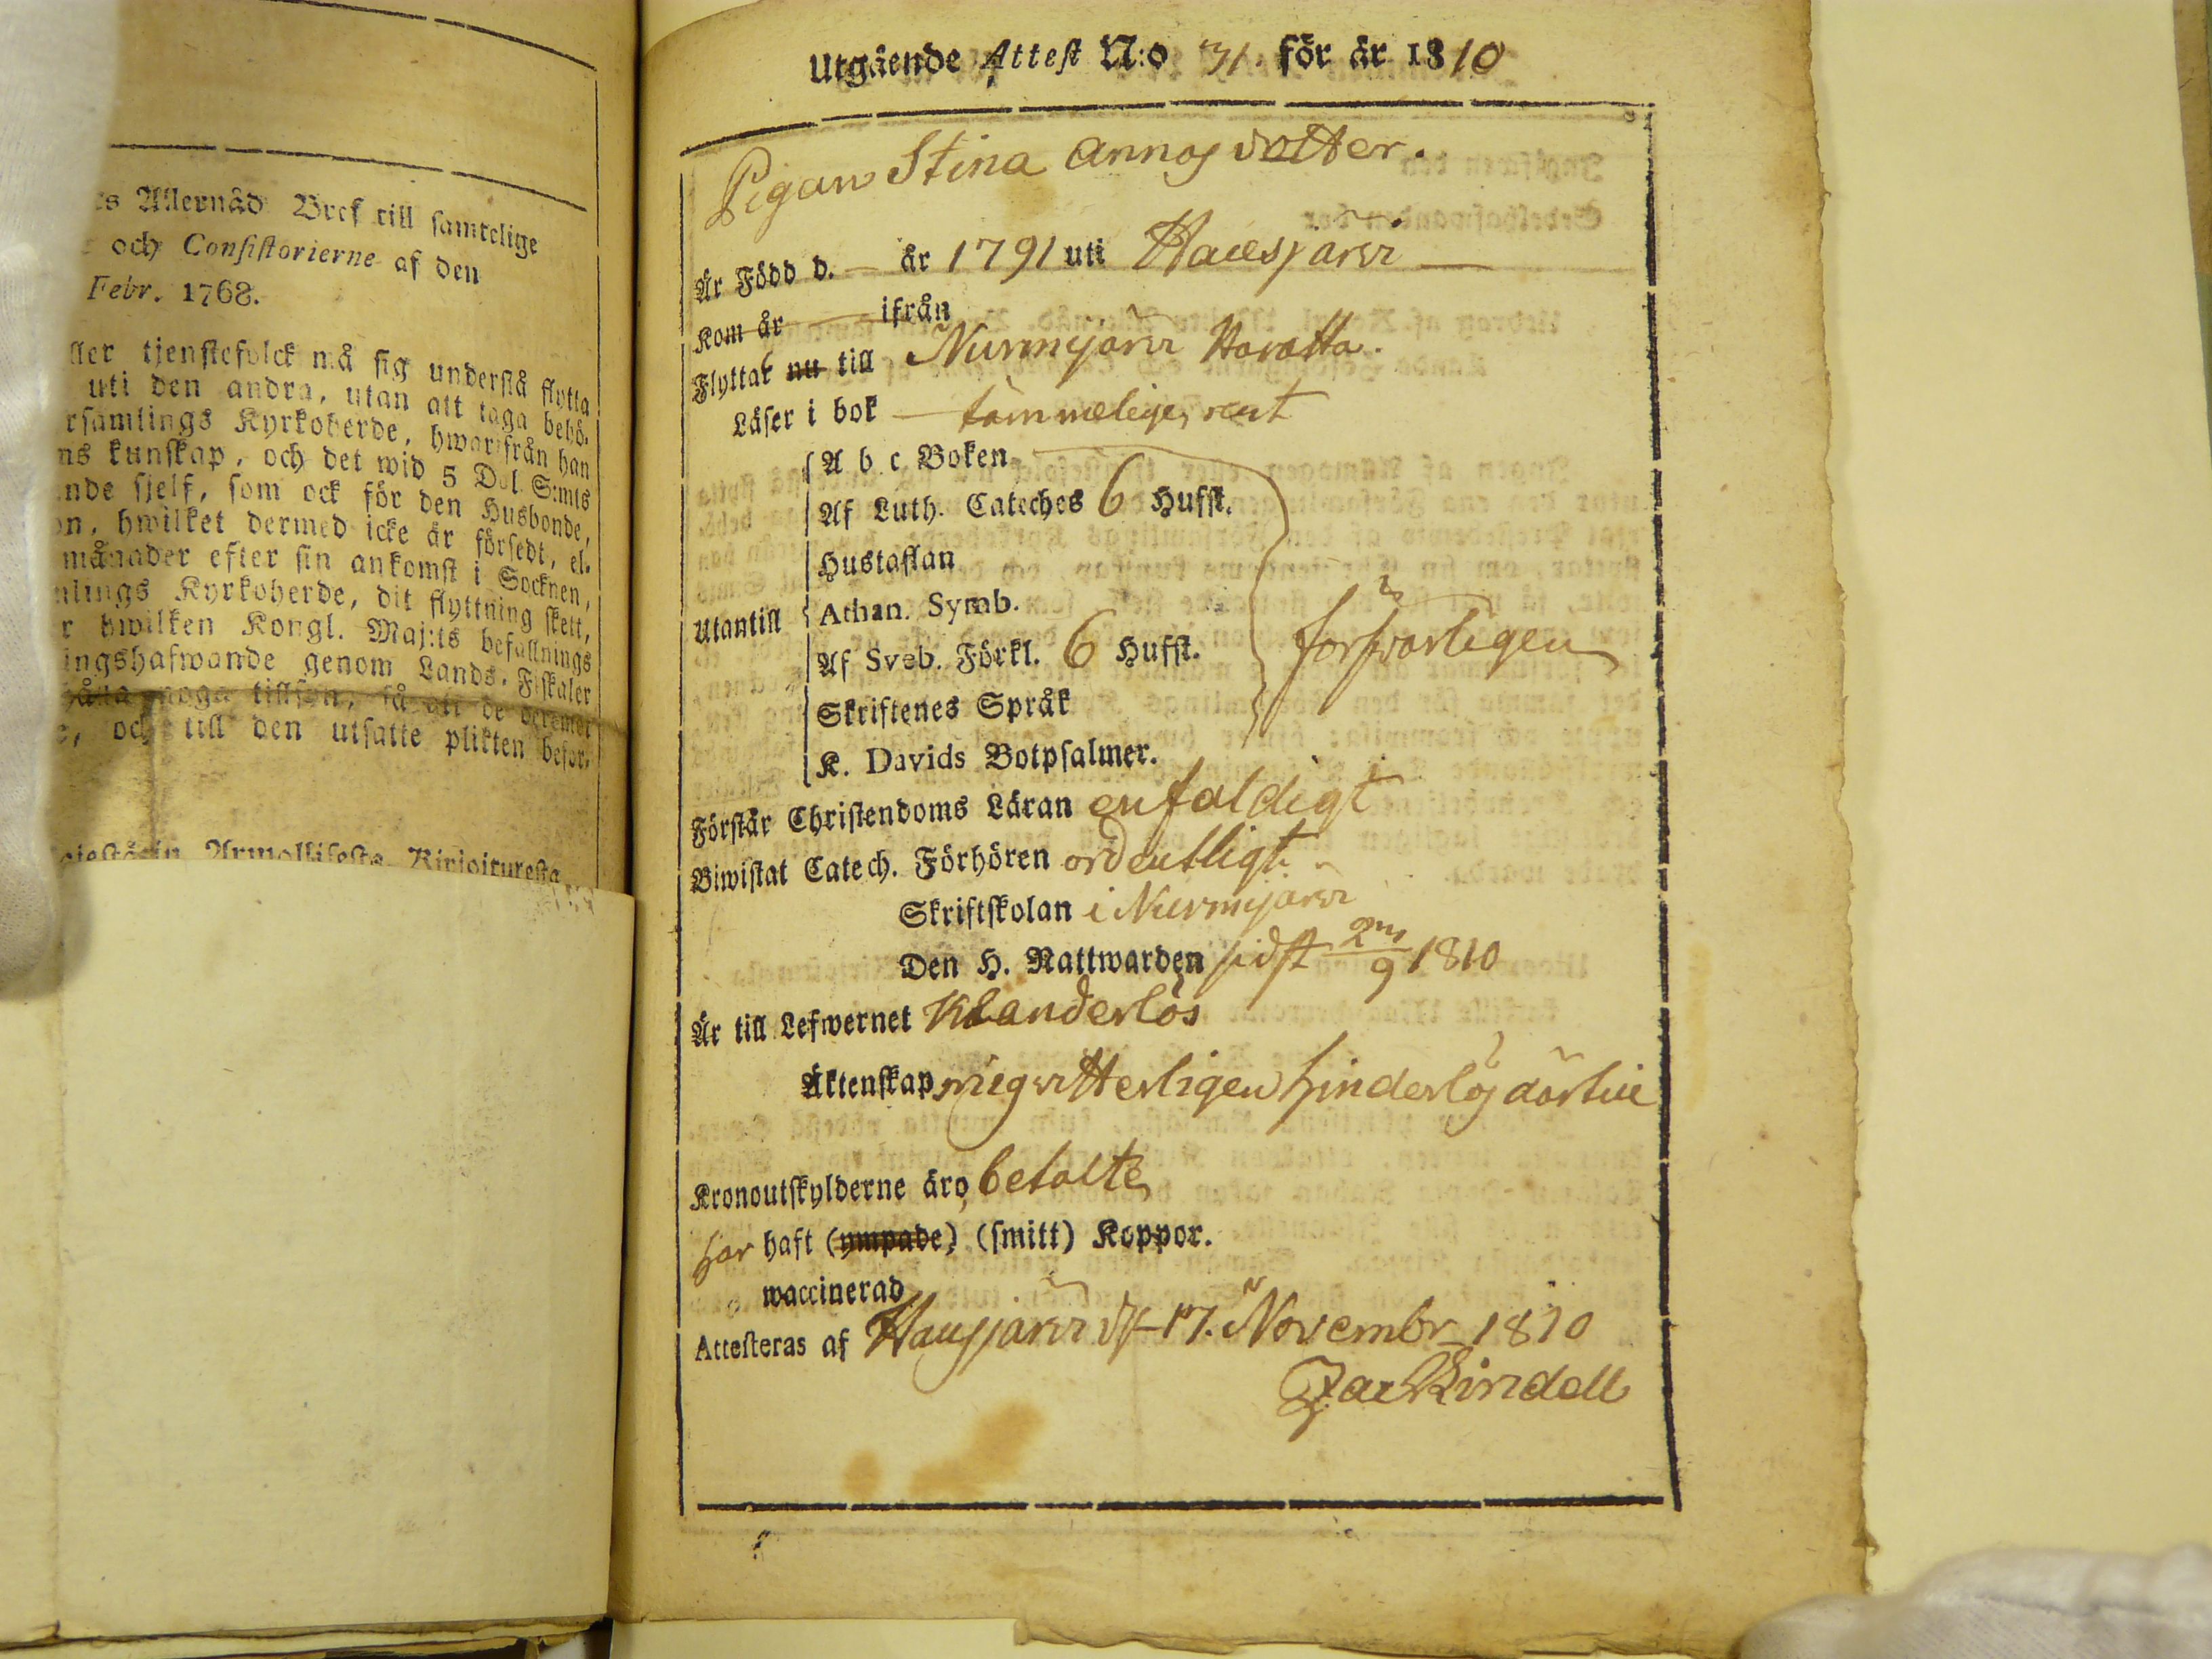 Allernåd Bref till samtelige
och Consistorierne af den
Febr. 1768.
tjenstefolck må sig understå flytta
uti den andra, utan att taga behö-
Kyrkoherde, hwarifrån han
kunskap, och det wid 5 Dal. S:mts
sjelf, som ock för den Husbonde,
hwilket dermed icke är försedt, el-
månader efter sin ankomst i Socknen,
Kyrkoherde, dit flyttning skett,
hwilken Kongl. Maj:ts befallnings
genom Lands-Fiskaler
noga tillsen, så att de deremot
och till den utsatte plikten befor-
Utgående Attest N:o 31. för år 1810
Pigan Stina Annos dotter.
Är Född d. — år 1791 uti Hausjärvi —
Kom år — ifrån
Flyttat nu till Nurmijärvi
Läser i bok — tämmelige rent
A b c Boken
Af Luth. Cateches 6 Hufst.
Hustaflan
Utantill
Athan. Symb.
Af Sveb. Förkl. 6 Hufst.
försvarligen
Skriftenes Språk
K. Davids Botpsalmer.
Förstår Christendoms Läran enfaldigt
Biwistat Catech. Förhören ordentligt
Skriftskolan i Nurmijärvi
Den H. Nattwarden sidst 2/9 1810
Är till Lefwernet Klanderlös
Äktenskap mig vitterligen hinderlös
Kronoutskylderne äro betalte
har haft (ympade) (smitt) Koppor.
waccinerad
Attesteras af Hausjärvi d. 17. Novembr 1810
Zac